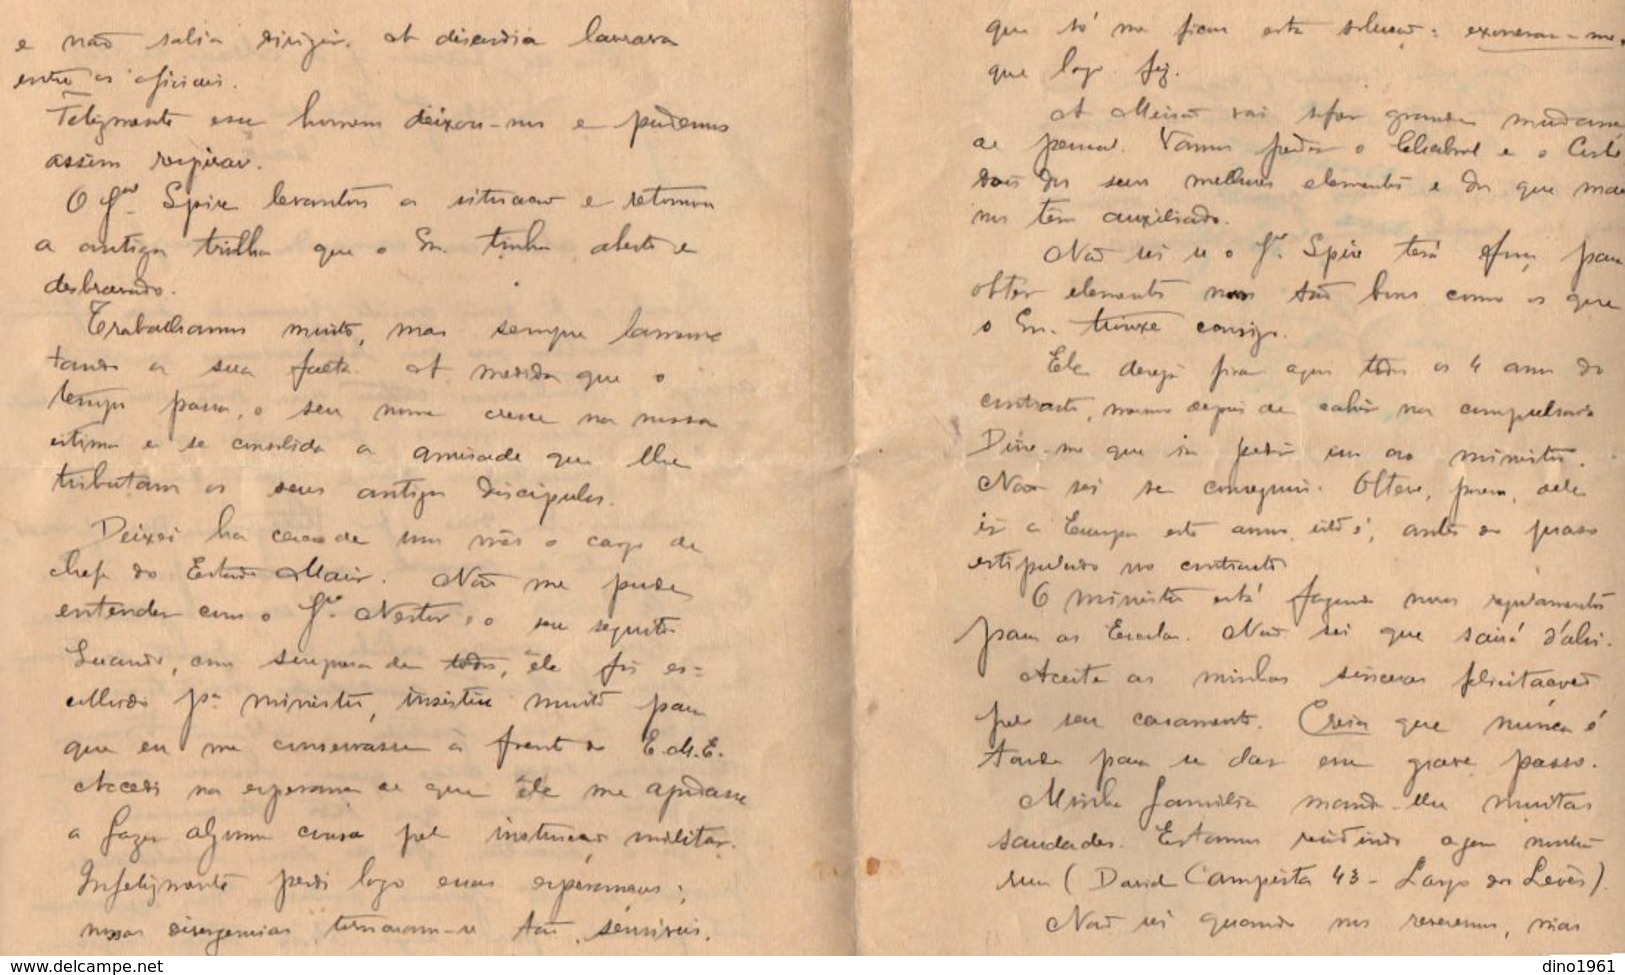 e não sabia dirigir. A discordia lavrava
entre os oficiais.
Felizmente esse homem deixou-nos e pudemos
assim respirar.
O Gal. Spire levantou a situacao e retomou
a antiga trilha que o Sr. tinha aberto e
desbravado.
Trabalhamos muito, mas sempre lamen
tando a sua falta. A medida que o
tempo passa, o seu nome cresce na nossa
estima e se consolida a amisade que lhe
tributam os seus antigos discipulos.
Deixei ha cerca de um mês o cargo de
chefe do Estado Maior. Não me pude
entender com o Gal. Nestor, o seu
Quando, com surpresa de todos, êle foi es=
colhido pa. ministro, insistiu muito para
que eu me conservasse à frente do E.M.E.
Accedi na esperança de que êle me ajudasse
a fazer alguma cousa pela instrucao militar.
Infelizmente perdi logo essas esperanças;
nossas divergencias tornaram-se tão sensiveis,
que só me ficou esta solução: exonerar-me,
que logo fiz.
A Missão vai sofrer grandes mudan
de pessoal. Vamos perder o Chabrol e o
dois dos seus melhores elementos e dos que mai
nos têm auxiliado.
Não sei se o Gal. Spire terá força para
obter elementos novos tão bons como os que
o Sr. trouxe consigo.
Ele deseja ficar aqui todos os 4 anos do
contracto, mesmo depois de cahir na compulsoria.
Disse-me que ia pedir isso ao ministro.
Não sei se conseguiu. Obteve, porem, dele
ir a Europa este anno, isto é, antes do praso
estipulado no contracto.
O ministro está fazendo novos regulamentos
para as Escolas. Não sei que sairá d'ahi.
Aceite as minhas sinceras felicitacoes
pelo seu casamento. Creia que nunca é
tarde para se dar esse grave passo.
Minha familia manda-lhe muitas
saudades. Estamos residindo agora nesta
rua (David Campista 43 - Largo dos Leões).
Não sei quando nos reveremos, mas
dino1961
www.delcampe.net